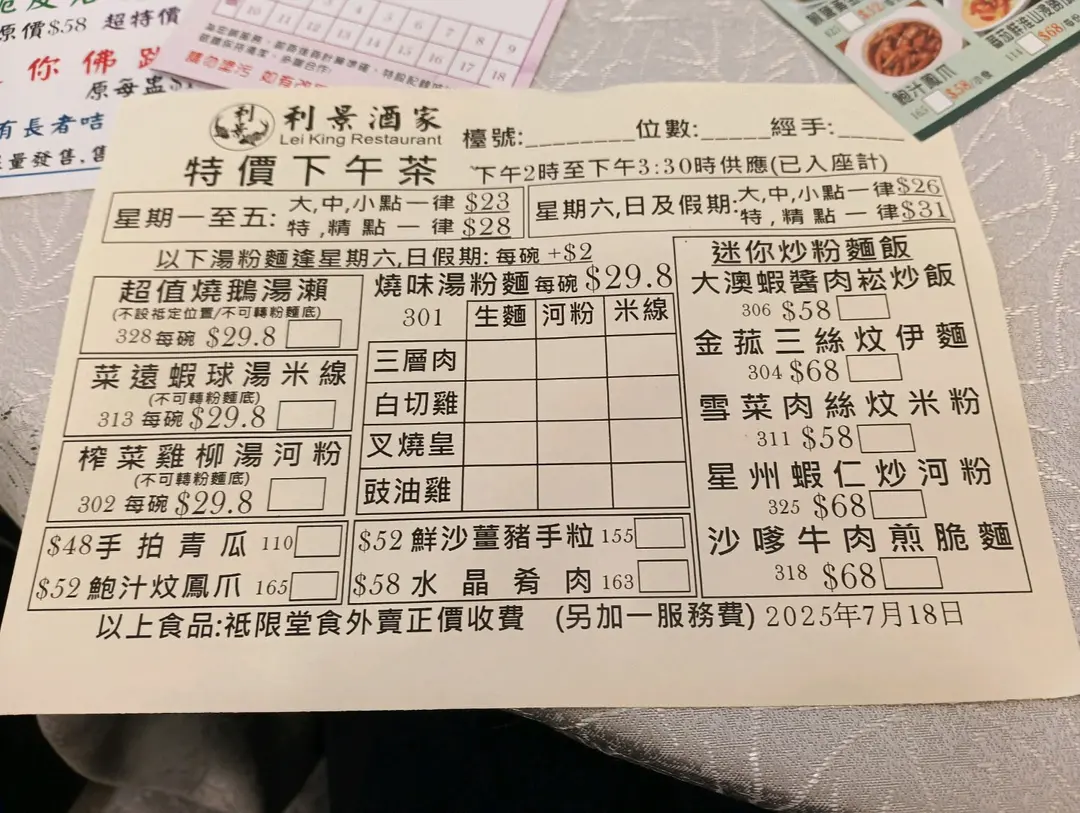 原價$58 超特價
你佛跳
原每盅$1
有長者咭
量發售,售
10 11 12 13 14 15 16 17 18
請勿塗污
$58
鮑汁鳳爪
165 $58
$68
利景
利景酒家
Lei King Restaurant
檯號:________ 位數:_____ 經手:_____
特價下午茶 下午2時至下午3:30時供應(已入座計)
星期一至五: 大,中,小點一律 $23
特,精點一律 $28
星期六,日及假期: 大,中,小點一律 $26
特,精點一律 $31
以下湯粉麵逢星期六,日假期: 每碗 +$2
超值燒鵝湯瀨
(不設祗定位置/不可轉粉麵底)
328 每碗 $29.8
菜遠蝦球湯米線
(不可轉粉麵底)
313 每碗 $29.8
榨菜雞柳湯河粉
(不可轉粉麵底)
302 每碗 $29.8
燒味湯粉麵 每碗 $29.8
301 生麵 河粉 米線
三層肉
白切雞
叉燒皇
豉油雞
迷你炒粉麵飯
大澳蝦醬肉崧炒飯
306 $58
金菰三絲炆伊麵
304 $68
雪菜肉絲炆米粉
311 $58
星州蝦仁炒河粉
325 $68
沙嗲牛肉煎脆麵
318 $68
$48 手拍青瓜 110
$52 鮑汁炆鳳爪 165
$52 鮮沙薑豬手粒 155
$58 水晶肴肉 163
以上食品:祗限堂食外賣正價收費 (另加一服務費) 2025年7月18日